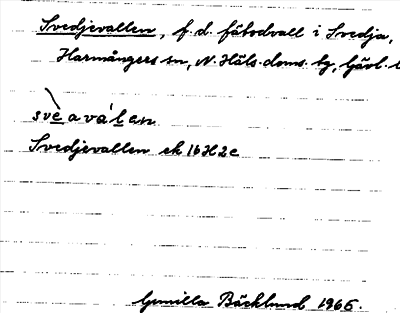 Svedjevallen, f.d. fäbodvall i Svedja,
Harmångers sn, N. Häls. doms. tg, Gävl. l
svèaválen
Svedjevallen ek 16H2e
Gunilla Bäcklund 1966.